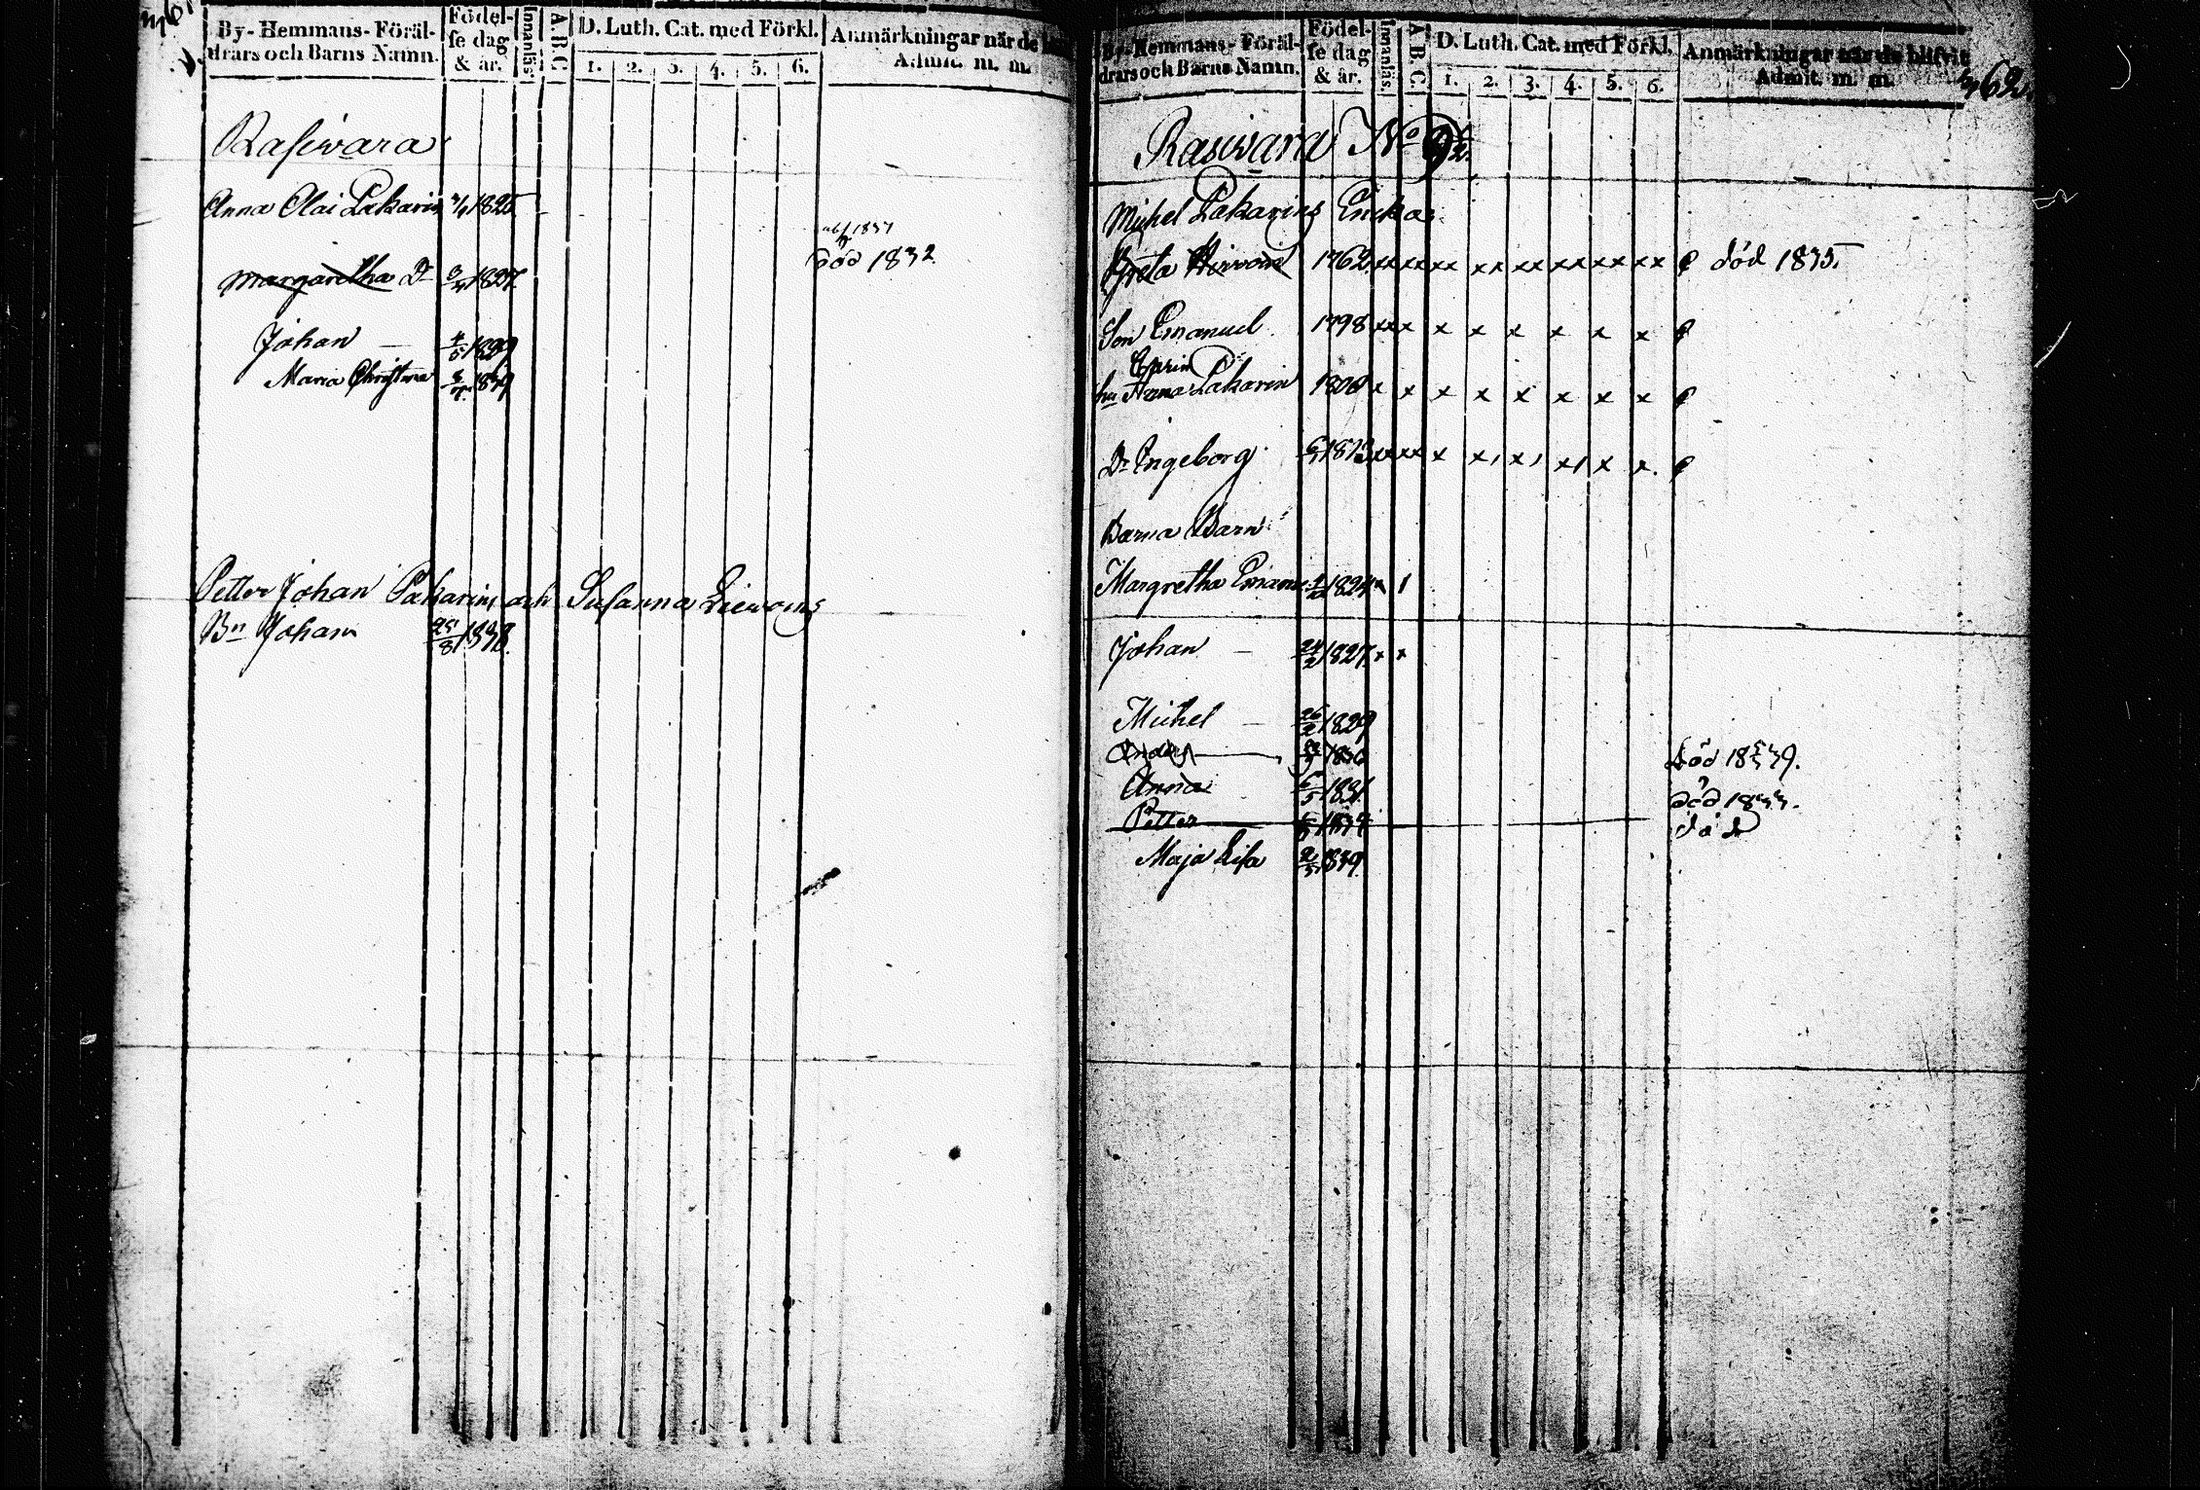 By-Hemmans-Föräl-
drars och Barns Namn.
Födel-
se dag
& år.
Innanläs
A.B.C.
D. Luth. Cat. med Förkl.
1. 2. 3. 4. 5. 6.
Anmärkningar när de
Admit. m. m.
Rasiwara
Anna Olai Pakarin 1825
död 1832.
Margaretha Dr 1827.
Johan — 4/5 1829
Maria Christina 1839
Petter Johan Pakarin och Susanna
Bn Johan 25/8 1838.
By-Hemmans-Föräl-
drars och Barns Namn.
Födel-
se dag
& år.
Innanläs
A.B.C.
D. Luth. Cat. med Förkl.
1. 2. 3. 4. 5. 6.
Anmärkningar när de blifvit
Admit. m. m.
362.
Rasiwara No 92.
Michel Pakarins Enka
Greta Hirvoin 1762 xx xx xx xx xx xx xx xx död 1835.
Son Emanuel 1798 xx x x x x x x x
Carin
hu Anna Pakarin 1806 x x x x x x x x
Dr Ingeborg 1813
Barna Barn
Margretha Eman 1824 x
Johan — 24/2 1827 x x
Michel — 26/2 1829
Anders — 1836 död 1839.
Anna 1831 död 1833.
Petter död
Maja Lisa 1839